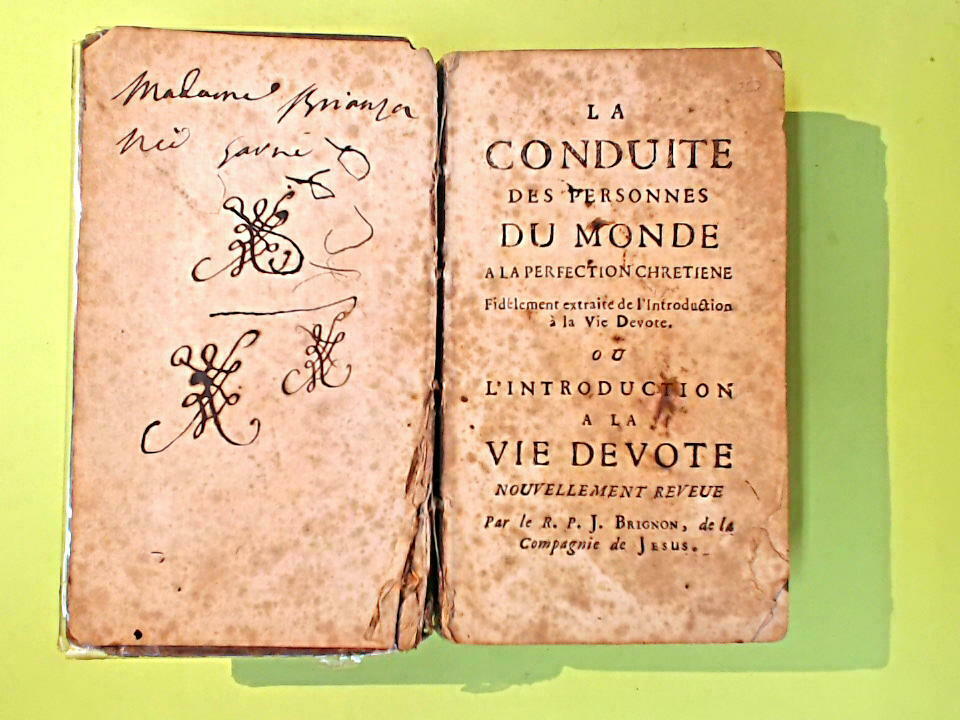 Madame Brianza
Née
LA
CONDUITE
DES PERSONNES
DU MONDE
A LA PERFECTION CHRETIENE
Fidélement extraite de l'Introduction
à la Vie Devote.
OU
L'INTRODUCTION
A LA
VIE DEVOTE
NOUVELLEMENT REVEUE
Par le R. P. J. BRIGNON, de la
Compagnie de JESUS.